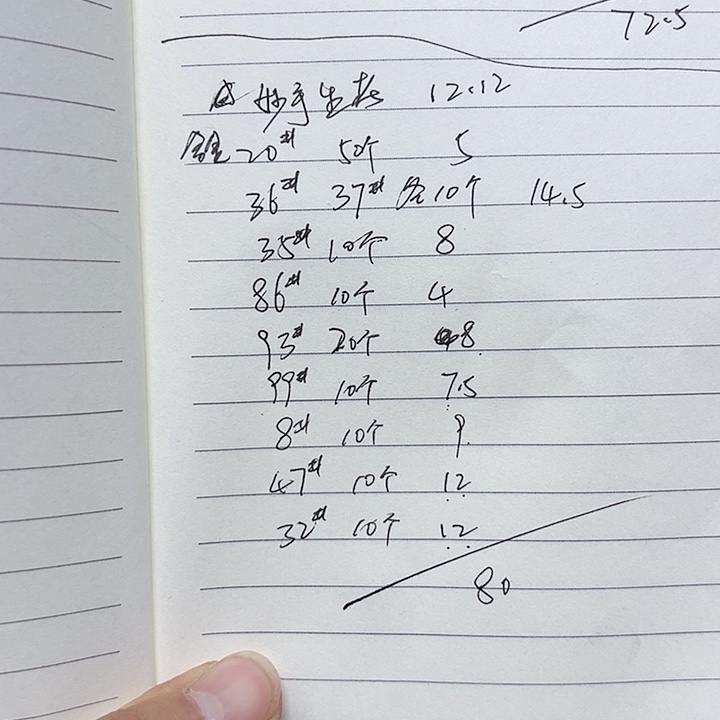 72.5
妙手生花 12.12
20# 50个 5
36# 37# 各10个 14.5
35# 10个 8
86# 10个 4
93# 20个 8
99# 10个 7.5
8# 10个 9
47# 10个 12
32# 10个 12
80